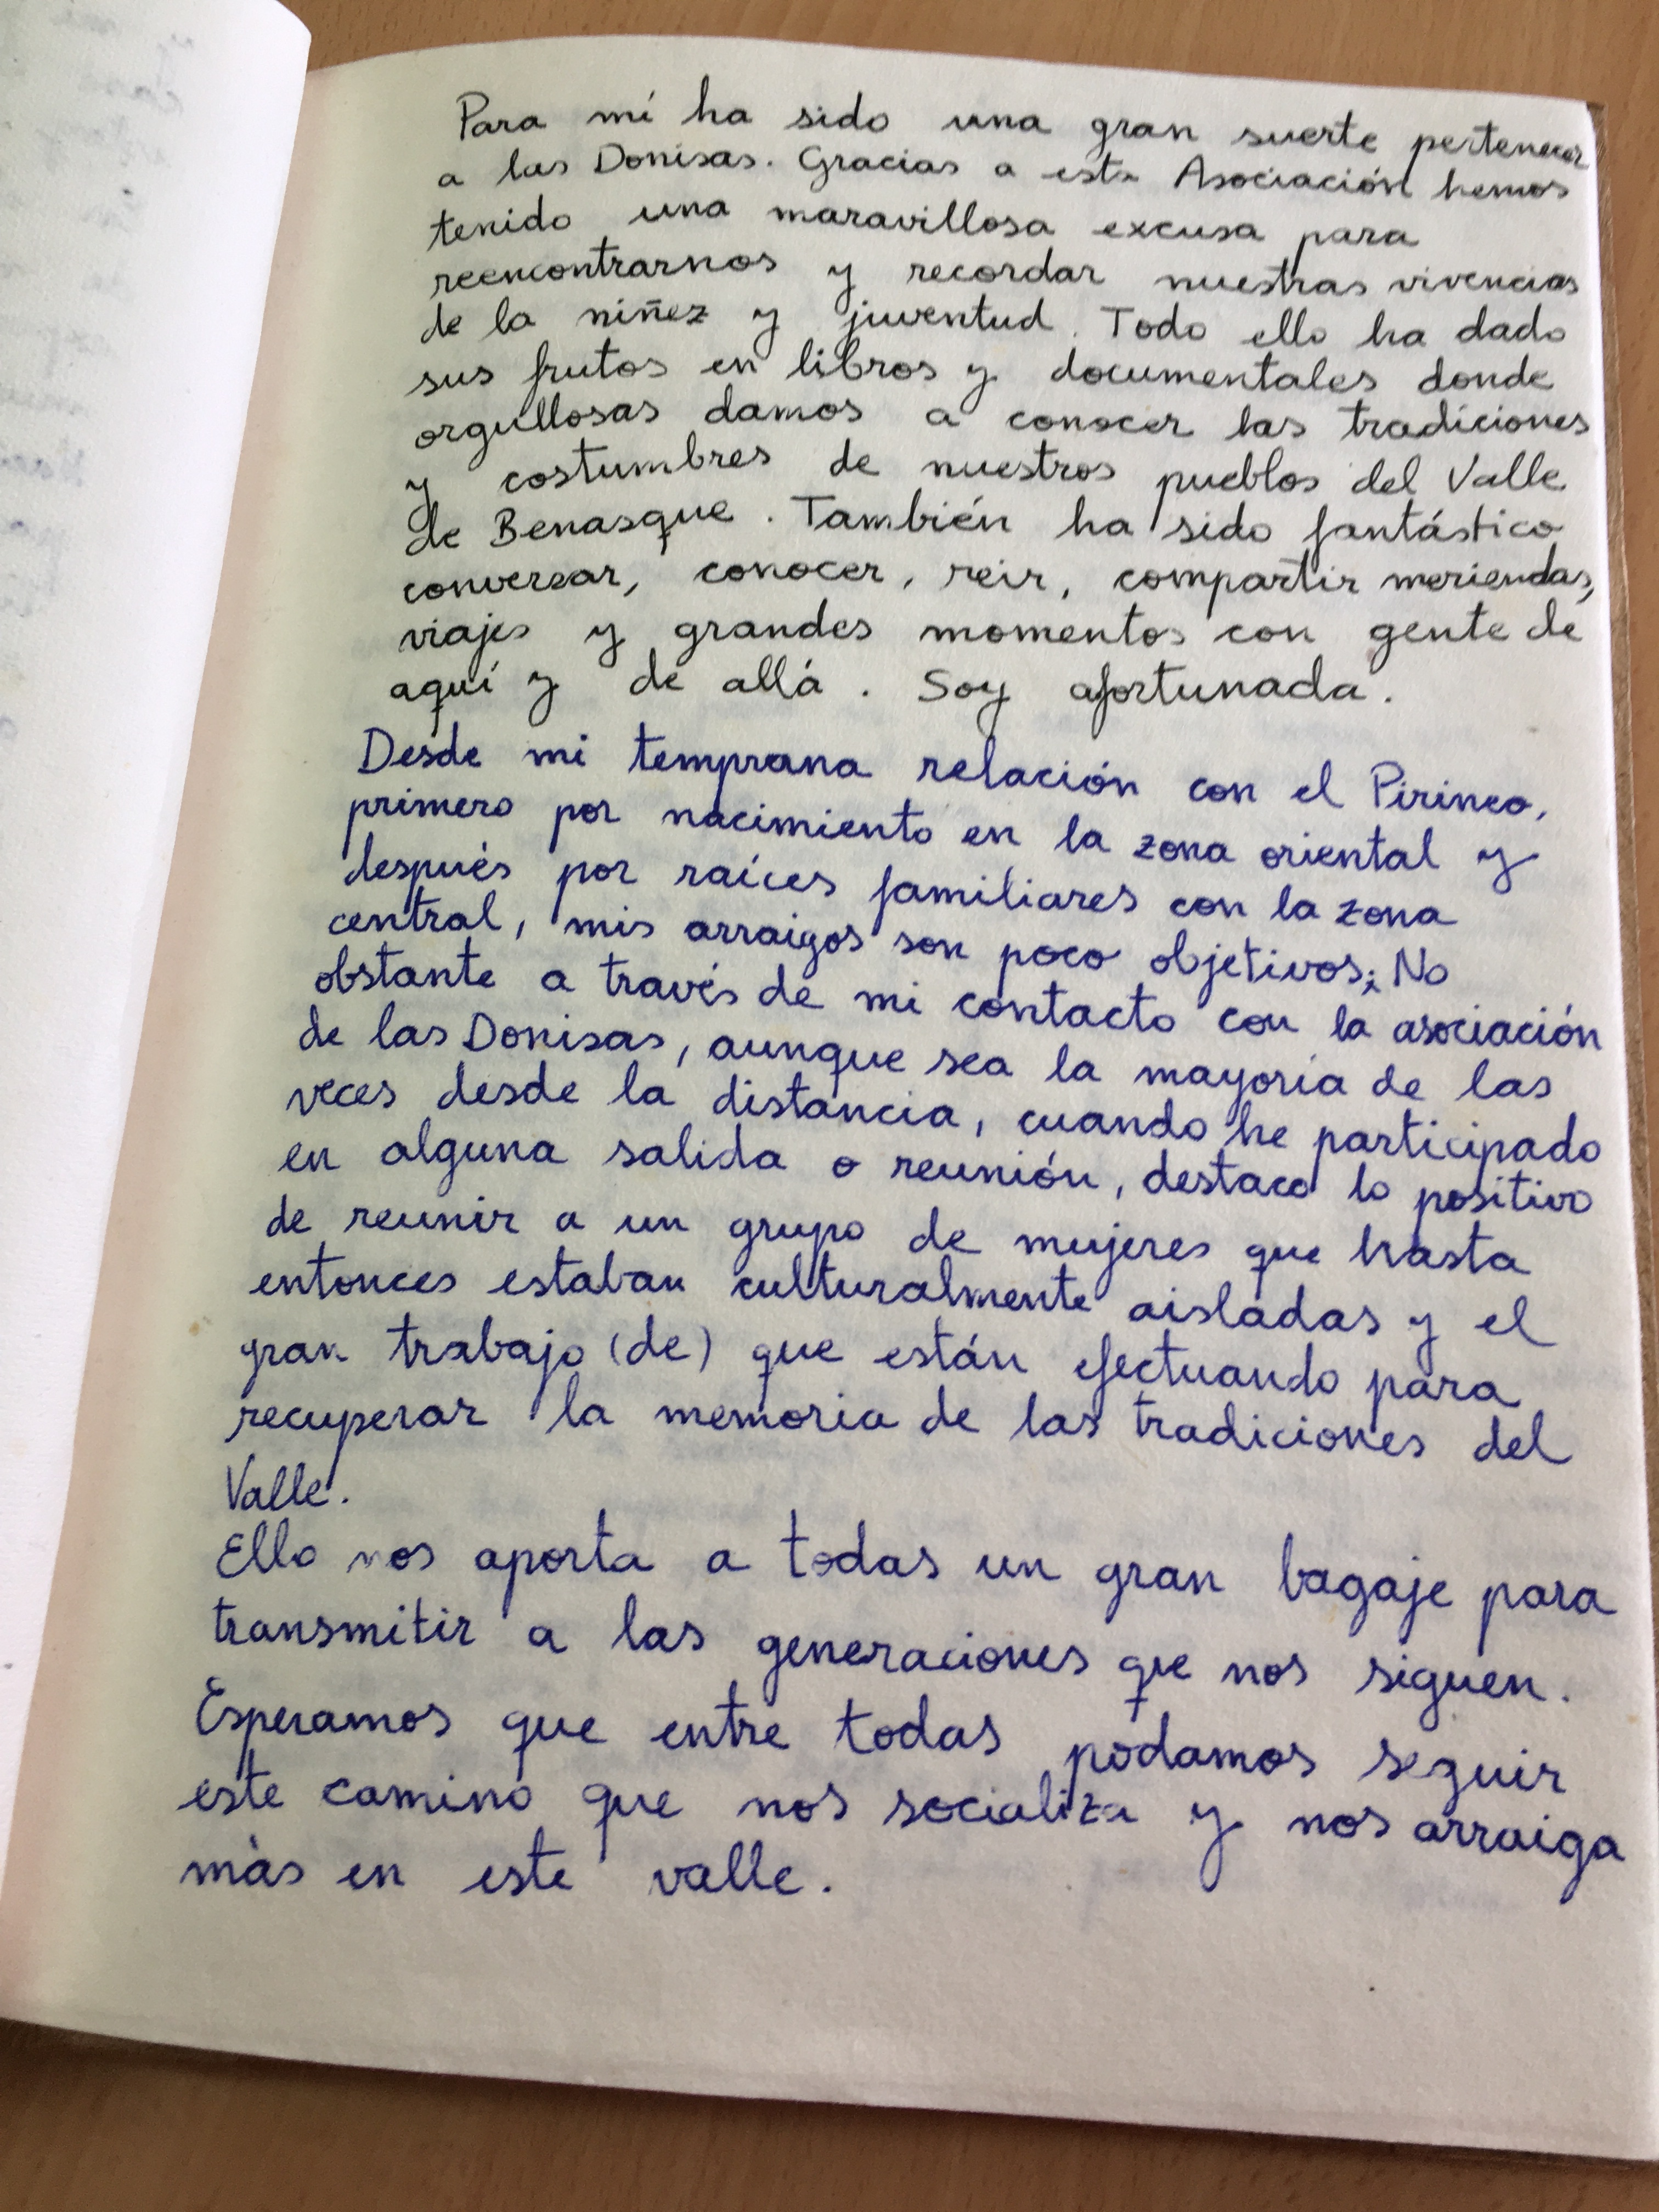 Para mí ha sido una gran suerte pertenecer
a las Donisas. Gracias a esta Asociación hemos
tenido una maravillosa excusa para
reencontrarnos y recordar nuestras vivencias
de la niñez y juventud. Todo ello ha dado
sus frutos en libros y documentales donde
orgullosas damos a conocer las tradiciones
y costumbres de nuestros pueblos del Valle
de Benasque. También ha sido fantástico
conversar, conocer, reir, compartir meriendas,
viajes y grandes momentos con gente de
aquí y de allá. Soy afortunada.
Desde mi temprana relación con el Pirineo,
primero por nacimiento en la zona oriental y
después por raíces familiares con la zona
central, mis arraigos son poco objetivos; No
obstante a través de mi contacto con la asociación
de las Donisas, aunque sea la mayoría de las
veces desde la distancia, cuando he participado
en alguna salida o reunión, destaco lo positivo
de reunir a un grupo de mujeres que hasta
entonces estaban culturalmente aisladas y el
gran trabajo (de) que están efectuando para
recuperar la memoria de las tradiciones del
Valle.
Ello nos aporta a todas un gran bagaje para
transmitir a las generaciones que nos siguen.
Esperamos que entre todas podamos seguir
este camino que nos socializa y nos arraiga
más en este valle.